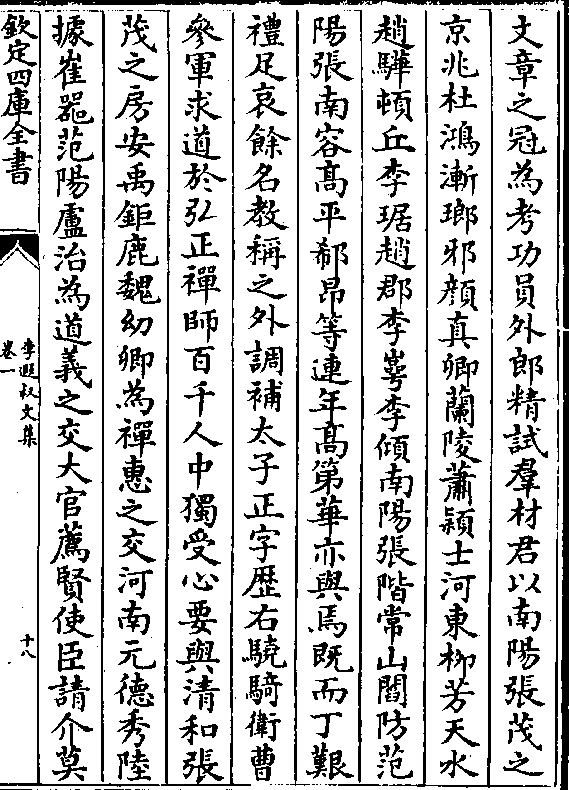 文章之冠為考功員外郎精試羣材君以南陽張茂之
京兆杜鴻漸瑯邪顔真卿蘭陵蕭穎士河東柳芳天水
趙驊頓丘李琚趙郡李崿李傾南陽張階常山閻防范
陽張南容髙平郗昂等連年髙第華亦與焉既而丁艱
禮足哀餘名教稱之外調補太子正字歴右驍騎衛曹
參軍求道於弘正禪師百千人中獨受心要與清和張
茂之房安禹鉅鹿魏幼卿為禪惠之交河南元德秀陸
據崔器范陽盧治為道義之交大官薦賢使臣請介莫
欽定四庫全書
李遐叔文集
卷一
十八